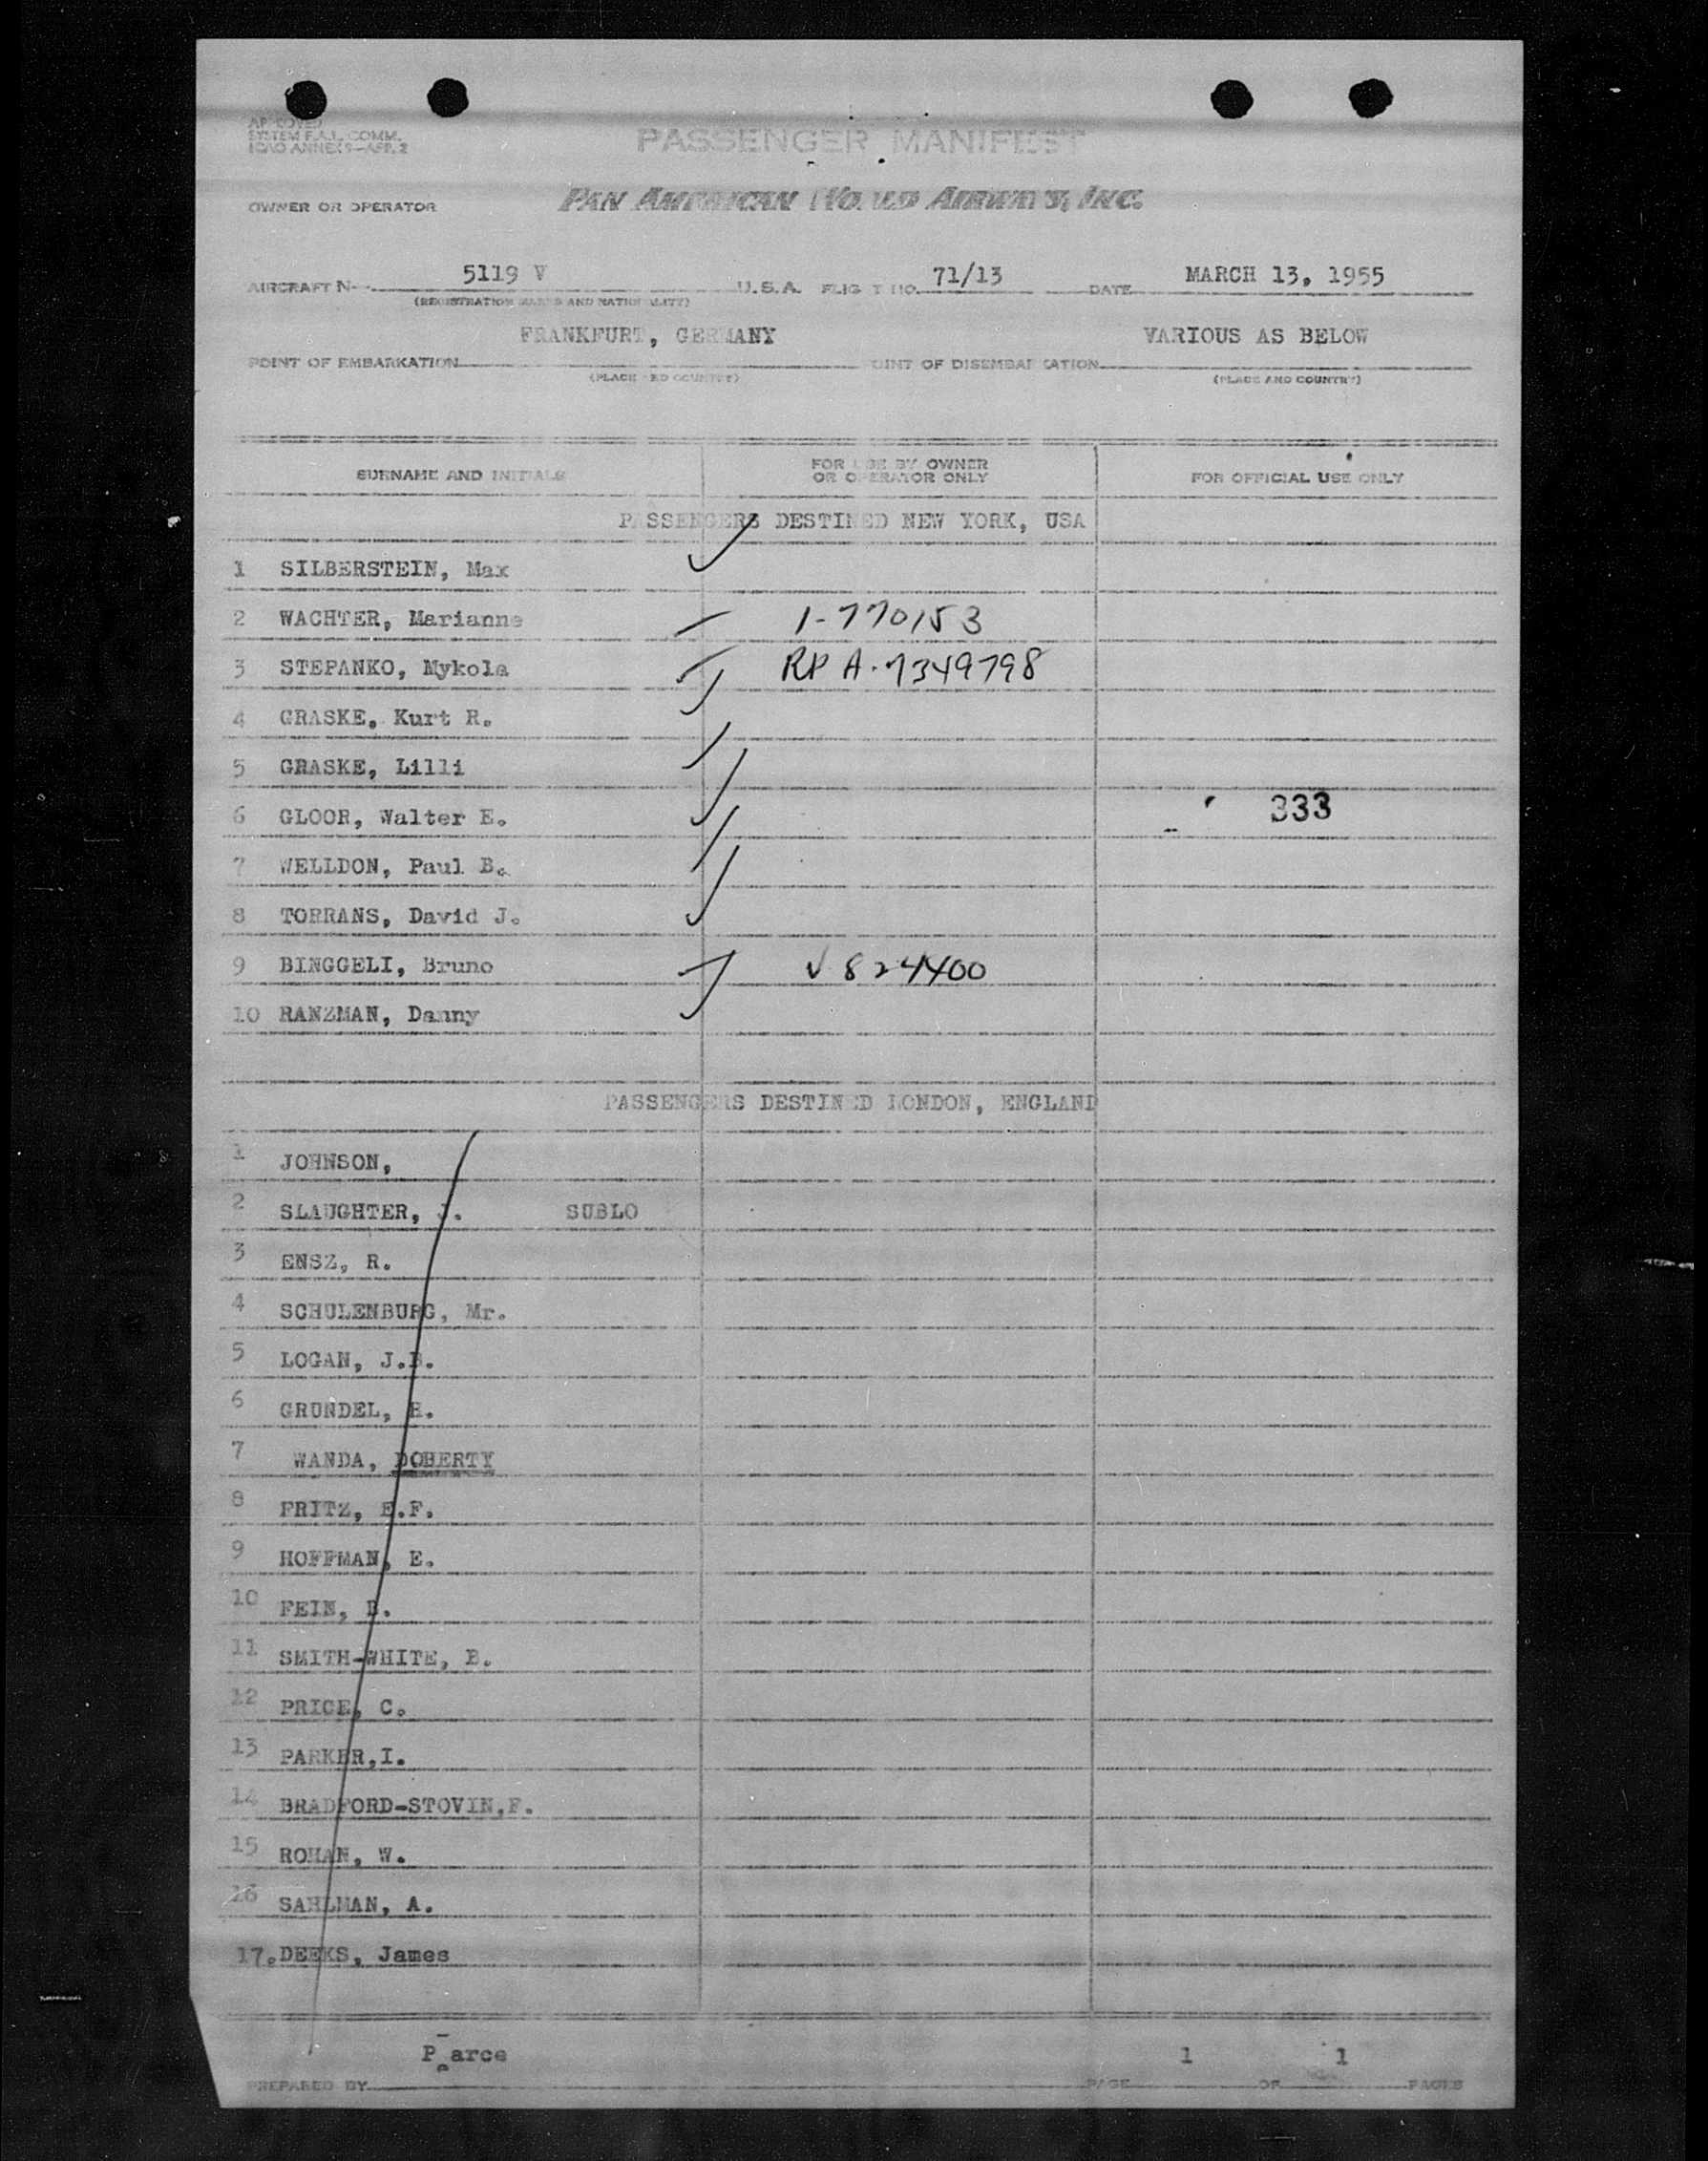 APPROVED
SYSTEM F.A.L. COMM.
ICAO ANNEX 9-APP. 2
PASSENGER MANIFEST
OWNER OR OPERATOR PAN AMERICAN WORLD AIRWAYS, INC.
AIRCRAFT N 5119 V U.S.A. FLIGHT NO. 71/13 DATE MARCH 13, 1955
(REGISTRATION MARKS AND NATIONALITY)
FRANKFURT, GERMANY VARIOUS AS BELOW
POINT OF EMBARKATION POINT OF DISEMBARKATION
(PLACE AND COUNTRY) (PLACE AND COUNTRY)
SURNAME AND INITIALS FOR USE BY OWNER OR OPERATOR ONLY FOR OFFICIAL USE ONLY
PASSENGERS DESTINED NEW YORK, USA
1 SILBERSTEIN, Max
2 WACHTER, Marianne 1-770153
3 STEPANKO, Mykola RP A-7349798
4 GRASKE, Kurt R.
5 GRASKE, Lilli
6 GLOOR, Walter E. 333
7 WELLDON, Paul B.
8 TORRANS, David J.
9 BINGGELI, Bruno V 824400
10 RANZMAN, Danny
PASSENGERS DESTINED LONDON, ENGLAND
1 JOHNSON,
2 SLAUGHTER, J. SUBLO
3 ENSZ, R.
4 SCHULENBURG, Mr.
5 LOGAN, J.B.
6 GRUNDEL, H.
7 WANDA, DOHERTY
8 FRITZ, E.F.
9 HOFFMAN, E.
10 FEIN,
11 SMITH-WHITE, B.
12 PRICE, C.
13 PARKER,I.
14 BRADFORD-STOVIN,F.
15 ROMAN, W.
16 SAHLMAN, A.
17. DEEKS, James
Pearce 1 1
PREPARED BY PAGE OF PAGES